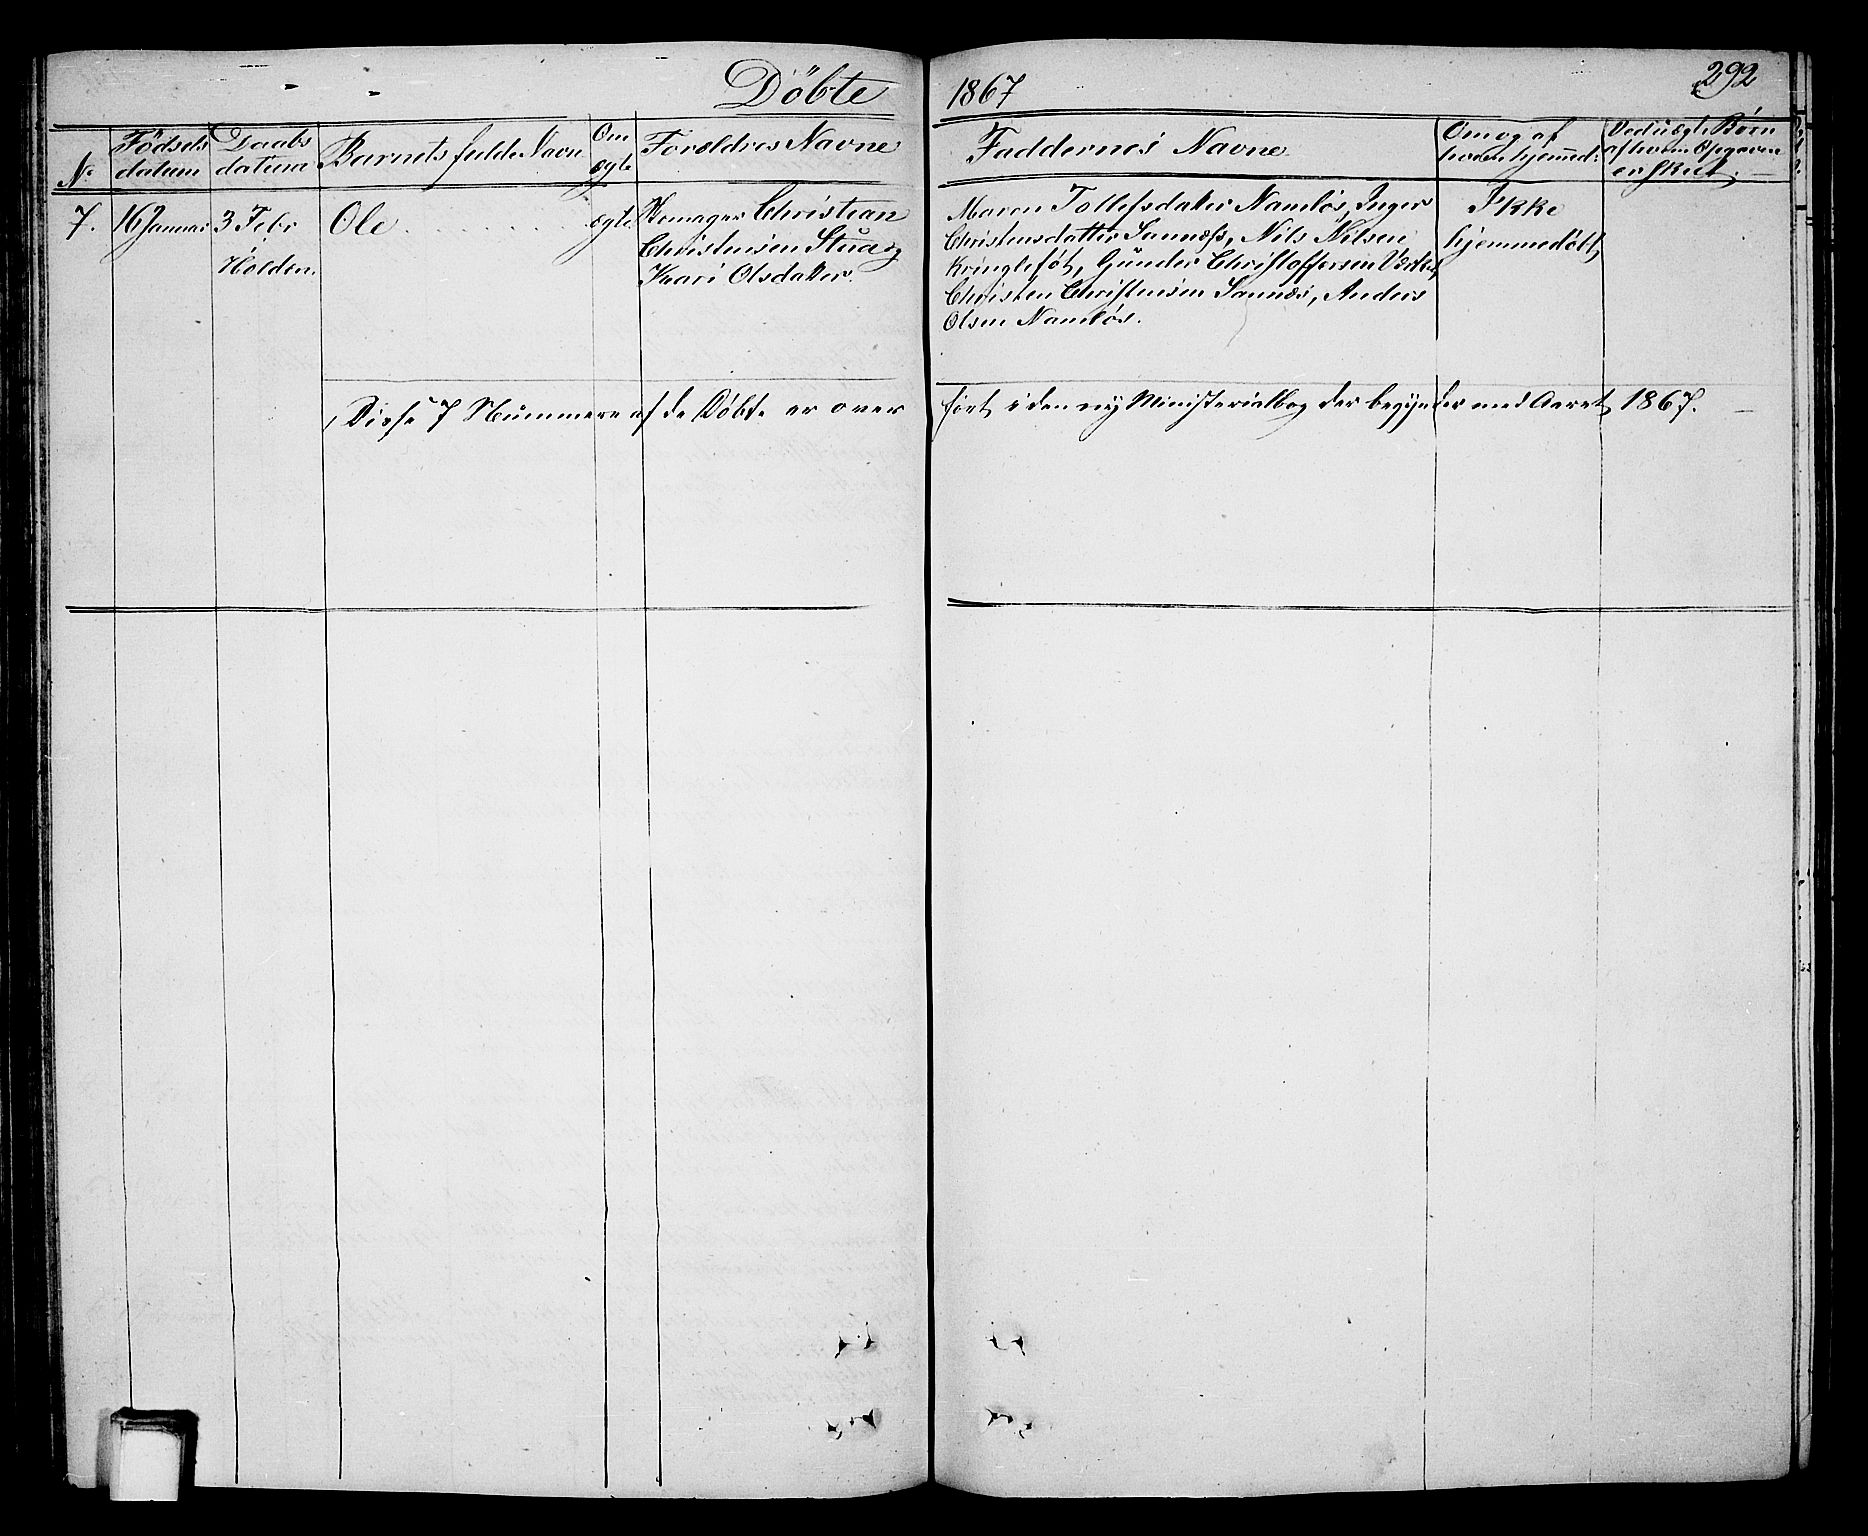 Döbte 1867 292
No
Fødsels
datum
Daabs
datum
Barnets fulde Navn
Om
ægte
Forældres Navne
Faddernes Navne
Om og af
hvem hjemmed:
Ved uægte Børn
af hvem Opgaven
er skeet.
7.
16 Januar
3 Febr
i
Holden.
Ole
ægte
Christian
Christensen Stua og
Kari Olsdatter.
Maren Tollefsdatter Namløs, Inger
Christensdatter Sannæs, Nils Nilsen
Kringlefót, Günder Christoffersen
Christen Christensen Sannæs, Anders
Olsen Namløs.
Ikke
hjemmedöbt
Disse 7 Nummere af de Döbte er over
ført i den ny Ministerialbog der begynder med Aaret 1867.